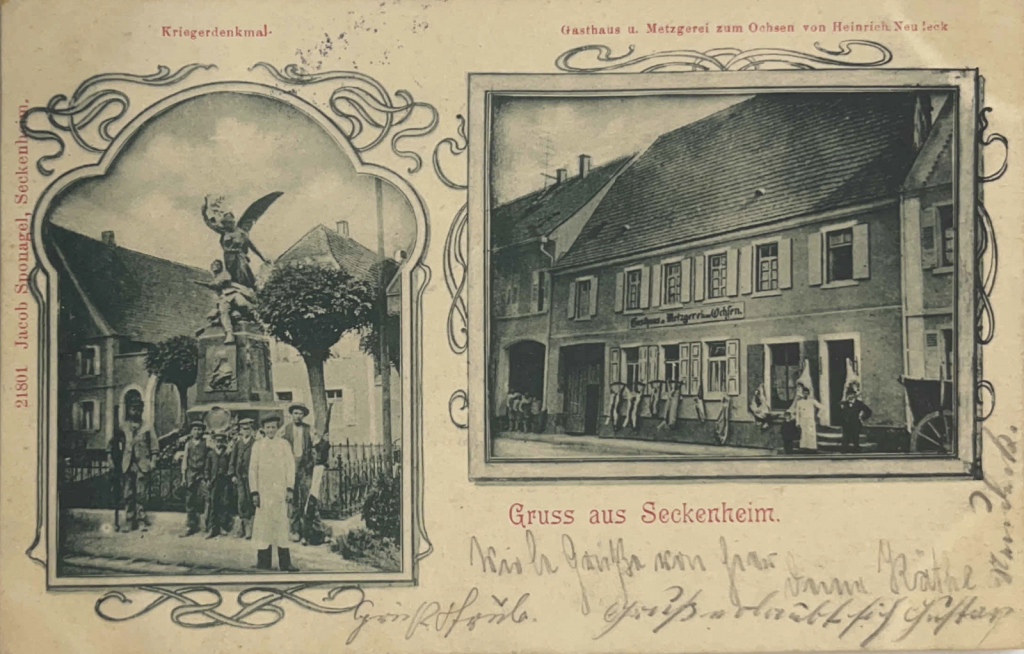 Kriegerdenkmal.
Gasthaus u. Metzgerei zum Ochsen von Heinrich Neufleck
21801 Jacob Sponagel, Seckenheim.
Gasthaus u. Metzgerei zum Ochsen.
Gruss aus Seckenheim.
Viele Grüße von hier
Deine Käthel
Gruß erlaubt sich Gustav
Gruß